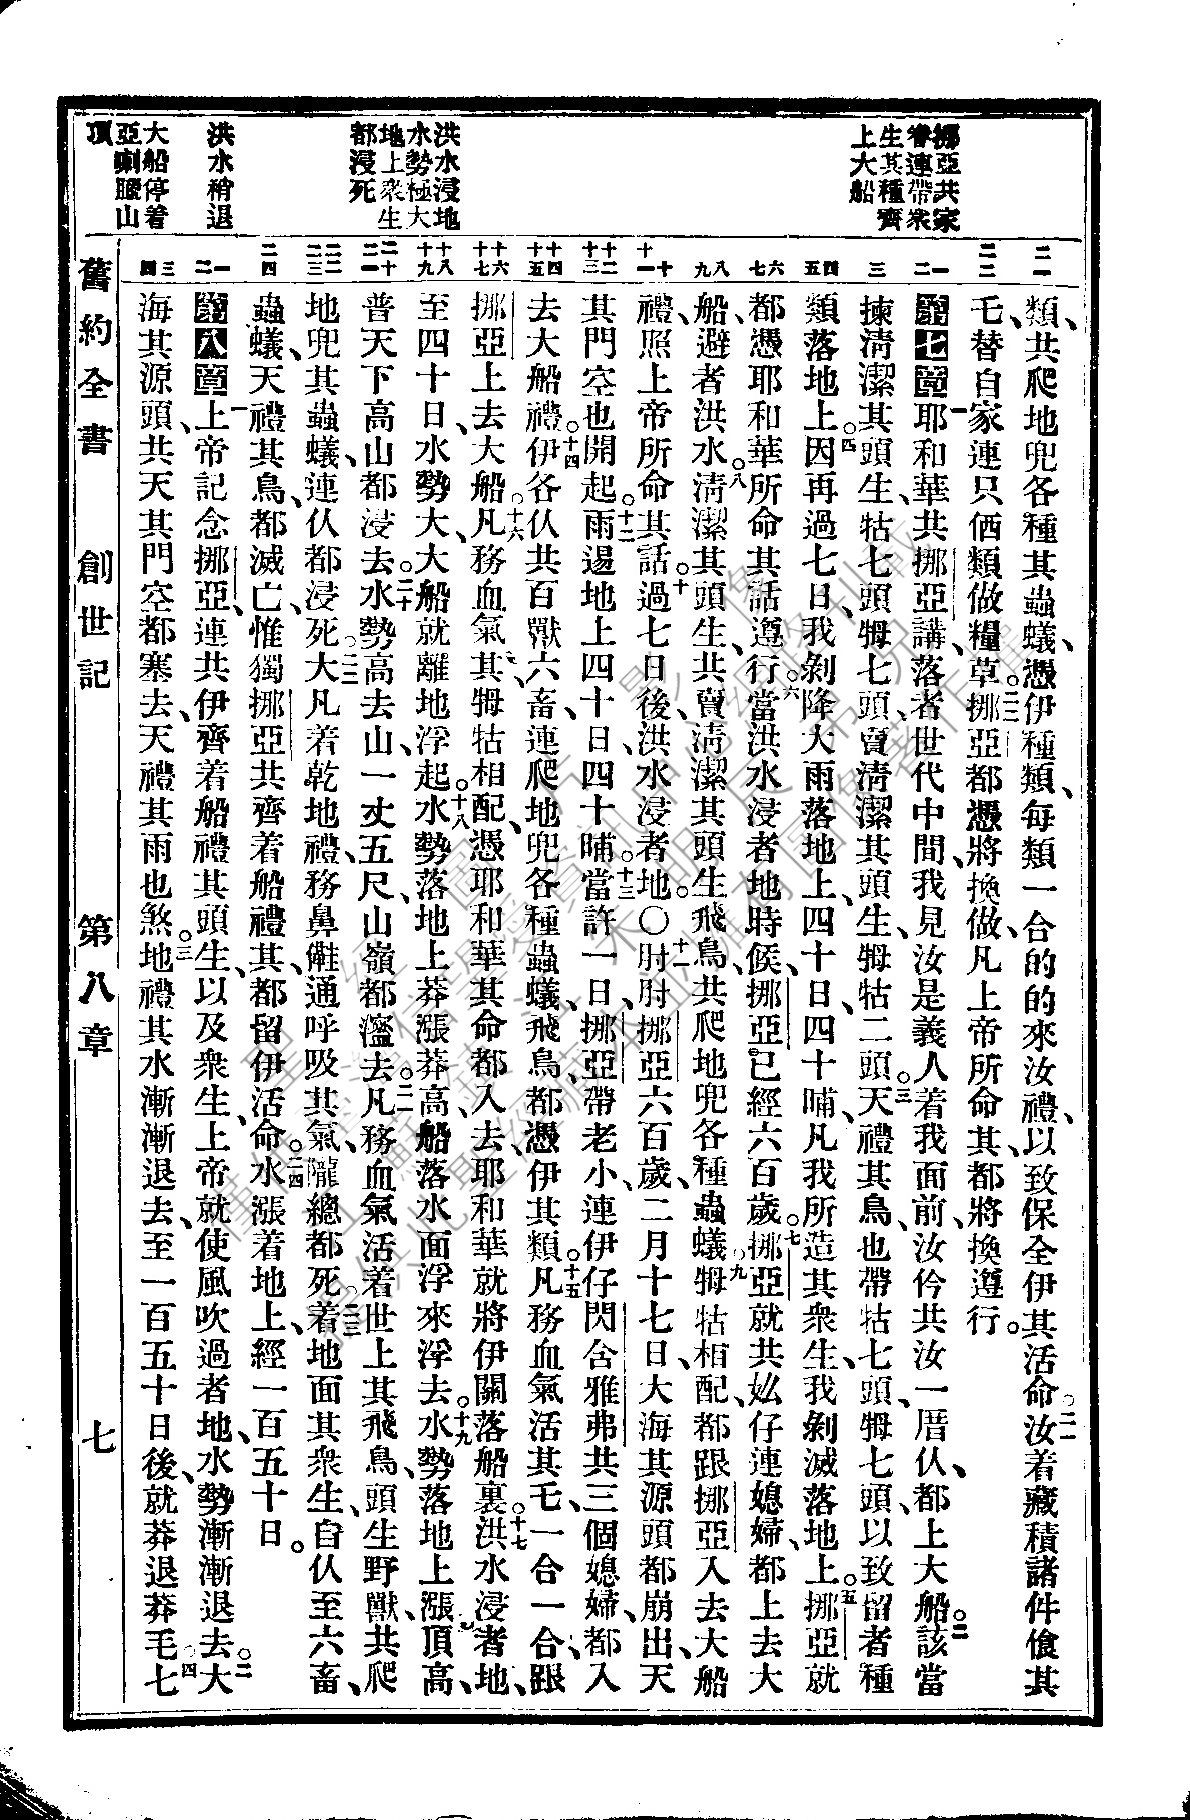 挪亞共家
眷連帶衆
生其種齊
上大船
洪水浸地
水勢極大
地上衆生
都浸死
洪水稍退
大船停着
亞喇臘山
頂
類、共爬地兜各種其蟲蟻、憑伊種類、每類一合的的來汝禮、以致保全伊其活命。二一汝着藏積諸件食其
乇、替自家連只価類做糧草。二二挪亞都憑將換做、凡上帝所命其、都將換遵行。
第七章 一耶和華共挪亞講、落者世代中間、我見汝是義人着我面前、汝伓共汝一厝仈、都上大船。二該當
揀清潔其頭生、牯七頭、牳七頭、賣清潔其頭生、牳牯二頭。三天禮其鳥也帶牯七頭、牳七頭、以致留者種
類落地上。四因再過七日、我剝降大雨落地上、四十日、四十晡、凡我所造其衆生、我剝滅落地上。五挪亞就
都憑耶和華所命其話遵行。六當洪水浸者地時候、挪亞已經六百歲。七挪亞就共妣仔連媳婦、都上去大
船、避者洪水。八清潔其頭生、共賣清潔其頭生、飛鳥、共爬地兜各種蟲蟻、九牳牯相配、都跟挪亞入去大船
禮、照上帝所命其話。十過七日後、洪水浸者地。○十一肘肘挪亞六百歲、二月十七日、大海其源頭都崩出、天
其門空也開起。十二雨遏地上四十日四十晡。十三當許一日、挪亞帶老小、連伊仔閃、含、雅弗、共三個媳婦、都入
去大船禮。十四伊各仈共百獸、六畜、連爬地兜各種蟲蟻、飛鳥、都憑伊其類。十五凡務血氣活其乇、一合一合、跟
挪亞上去大船。十六凡務血氣其、牳牯相配、憑耶和華其命都入去、耶和華就將伊關落船裏。十七洪水浸者地、
至四十日、水勢大、大船就離地浮起。十八水勢落地上莽漲莽高、船落水面浮來浮去。十九水勢落地上漲頂高、
普天下高山都浸去。二十水勢高去山一丈五尺、山嶺都瀊去。二一凡務血氣活着世上其飛鳥、頭生、野獸、共爬
地兜其蟲蟻、連仈都浸死。二二大凡着乾地禮、務鼻傩通呼吸其氣、隴總都死。二三着地面其衆生、自仈至六畜、
蟲蟻、天禮其鳥、都滅亡、惟獨挪亞共齊着船禮其、都留伊活命。二四水漲着地上、經一百五十日。
第八章 一上帝記念挪亞、連共伊齊着船禮其頭生、以及衆生、上帝就使風吹過者地、水勢漸漸退去。二大
海其源頭、共天其門空都塞去、天禮其雨也煞。三地禮其水漸漸退去、至一百五十日後、就莽退莽乇。四七
舊約全書 創世記 第八章 七